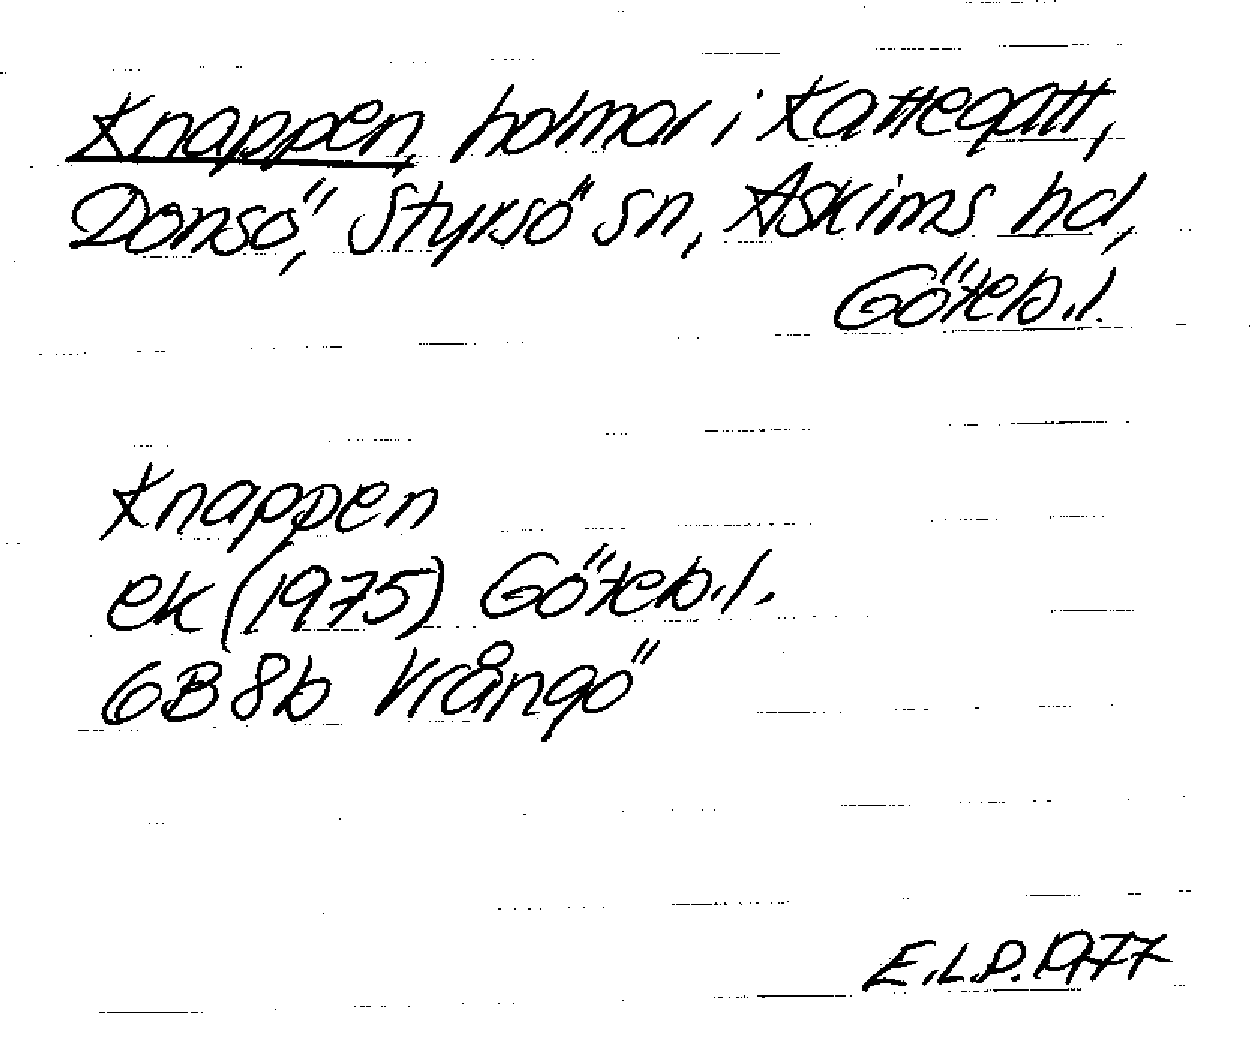 Knappen, holmar i Kattegatt,
Donsö, Styrsö sn, Askims hd,
Göteb.l.
Knappen
ek (1975) Göteb.l.
6B8b Vrångö
E.L.P. 1977